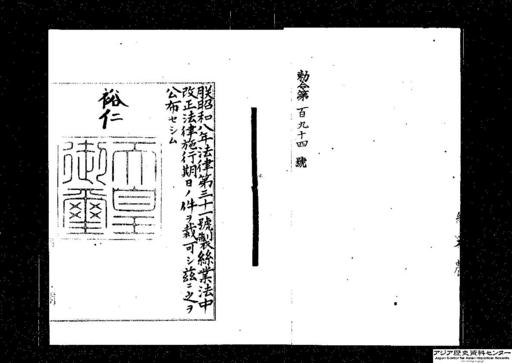 勅令第百九十四號
朕昭和八年法律第三十一號製絲業法中
改正法律施行期日ノ件ヲ裁可シ茲ニ之ヲ
公布セシム
裕仁
天皇
御璽
アジア歴史資料センター
Japan Center for Asian Historical Records